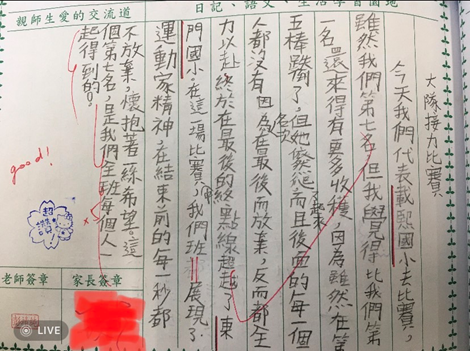 親師生愛的交流道
日記、語文、生活學習園地
大隊接力比賽
今天我們代表載熙國小去比賽,
雖然我們第七名,但我覺得比我們第
一名還來得有更多收穫,因為雖然在第
五棒了,但她而且後面的每一個
人都沒有因為名次最後而放棄,反而都全
力以赴終於在最後的終點線超越了東
門國小,在這場比賽中,我們班展現了
運動家精神,在結束前的每一秒都
不放棄,懷抱著一絲希望。這
個第七名,是我們全班每個人
起得到的!
good!
超讚
家長簽章
老師簽章
LIVE